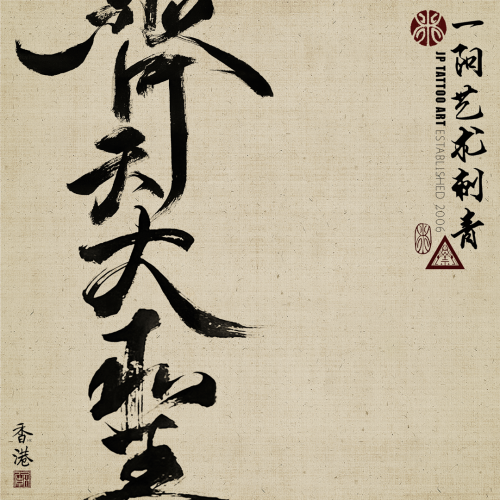 一阳艺术刺青
JP TATTOO ART ESTABLISHED 2006
齊天大聖
香港